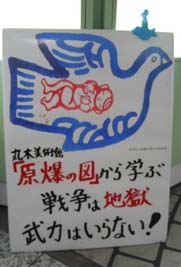 丸木美術館
「原爆の図」から学ぶ
戦争は地獄
武力はいらない!